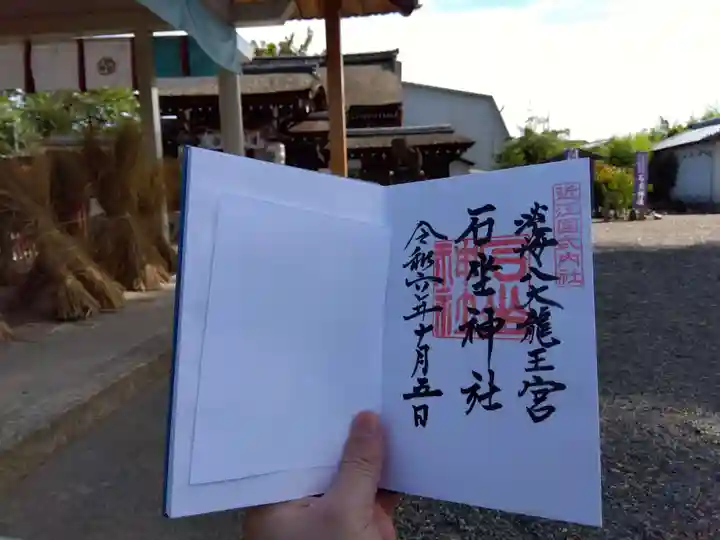 近江国式内社
海八大龍王宮
石坐神社
石坐
神社
令和六年十月五日